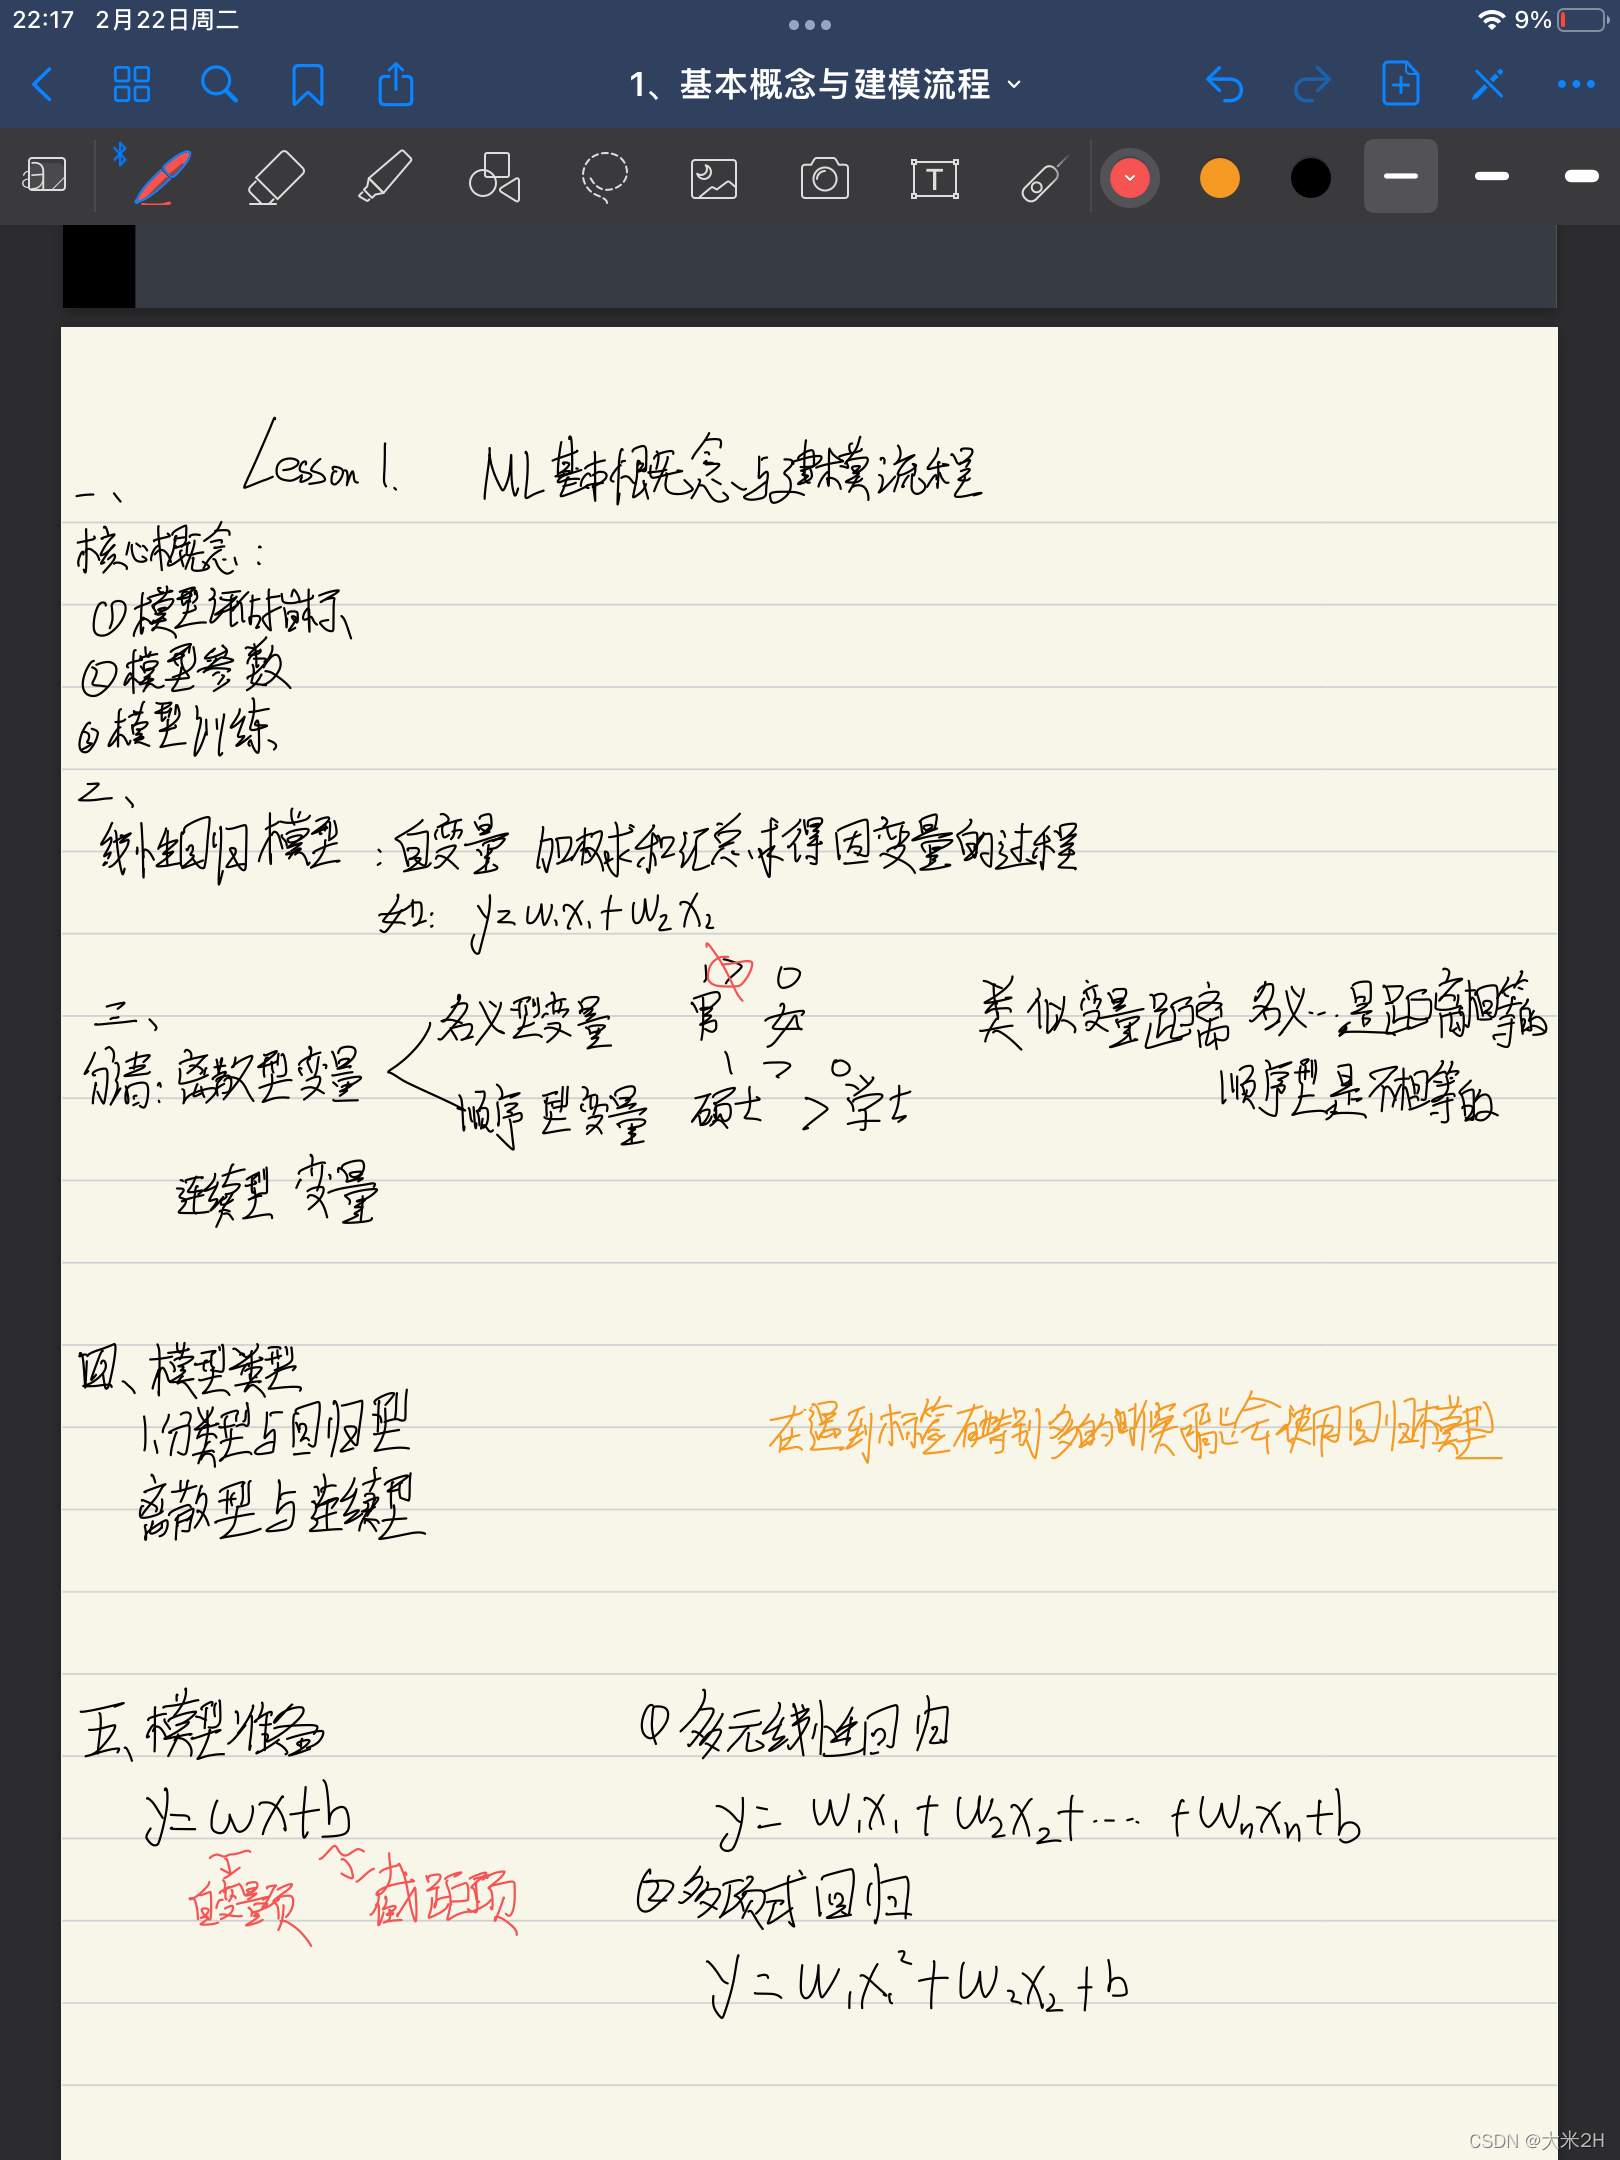 22:17 2月22日周二
9%
1、基本概念与建模流程
T
Lesson 1. ML基本概念与建模流程
一、
核心概念：
①模型评估指标、
②模型参数
③模型训练、
二、
线性回归模型：自变量 加权求和汇总求得因变量的过程
如：y=w₁x₁+w₂x₂
1 0
三、
名义型变量 男 女 类似变量距离 名义…是距离相等的
1 > 0
分清：离散型变量
顺序型变量 硕士 > 学士 顺序型是不相等的
连续型 变量
四、模型类型
1、分类型与回归型 在遇到标签有特别多的时候可能会使用回归模型
离散型与连续型
五、模型准备 ①多元线性回归
y=wx+b y=w₁x₁+w₂x₂+…… +wₙxₙ+b
自变量项 截距项 ②多项式回归
y=w₁x₁²+w₂x₂+b
CSDN @大米2H